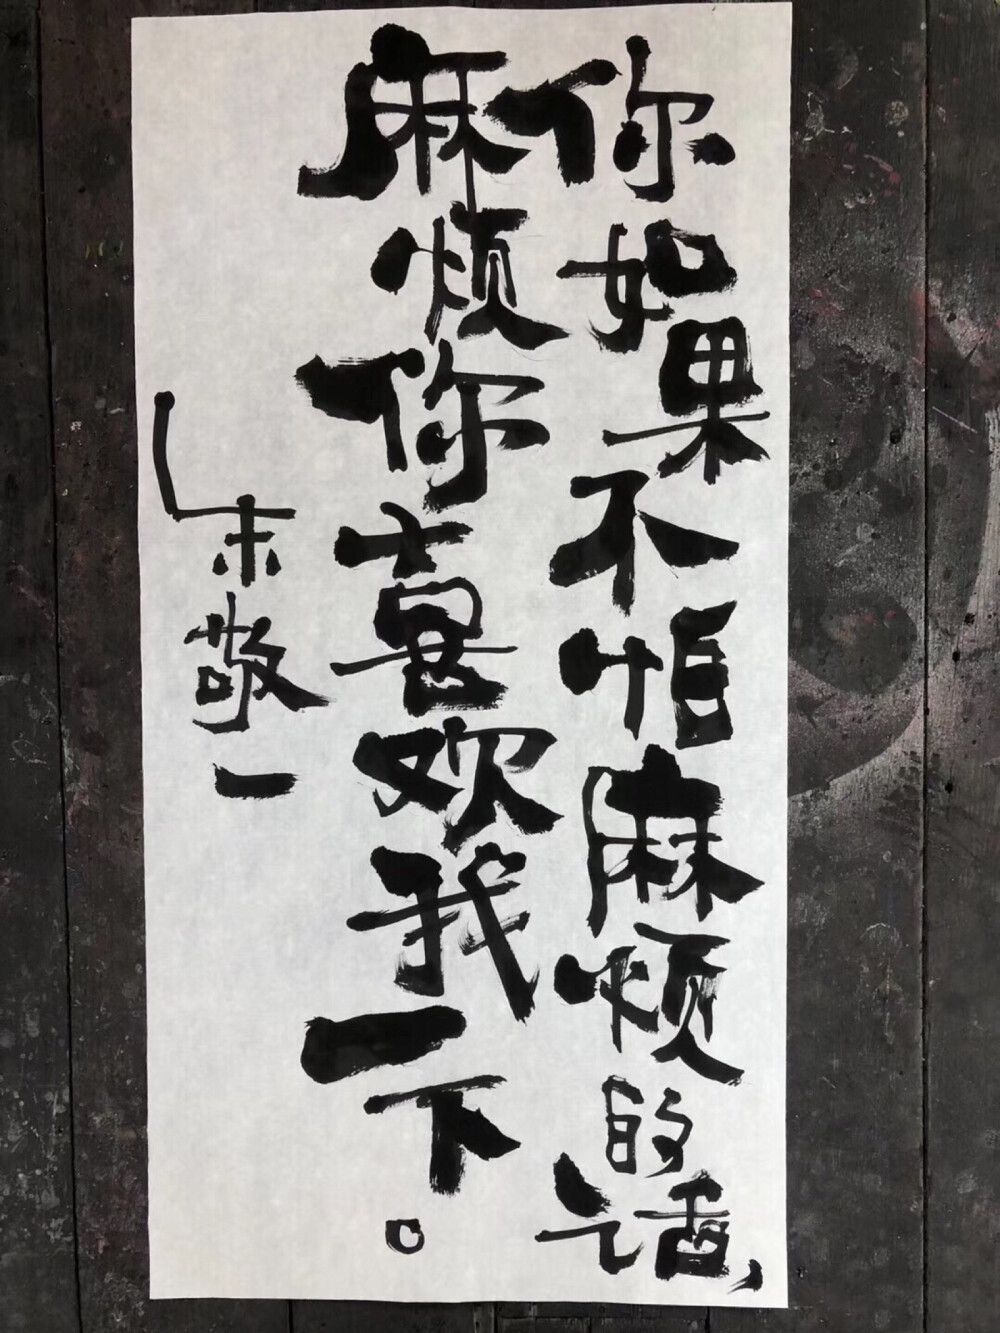 你如果不怕麻烦的话，
麻烦你喜欢我一下。
朱敬一